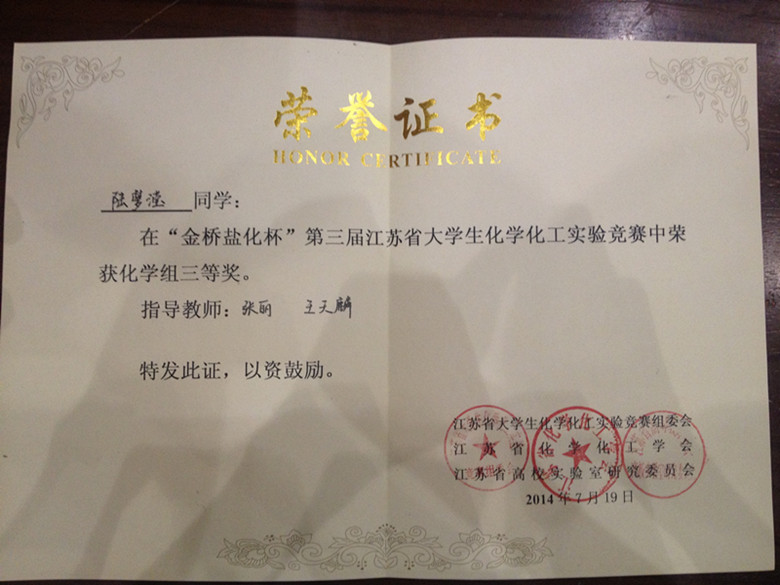 荣誉证书
HONOR CERTIFICATE
同学:
在“金桥盐化杯”第三届江苏省大学生化学化工实验竞赛中荣
获化学组三等奖。
指导教师:张丽 王天麟
特发此证,以资鼓励。
江苏省大学生化学化工实验竞赛组委会
江苏省化学化工学会
江苏省高校实验室研究委员会
2014年7月19日